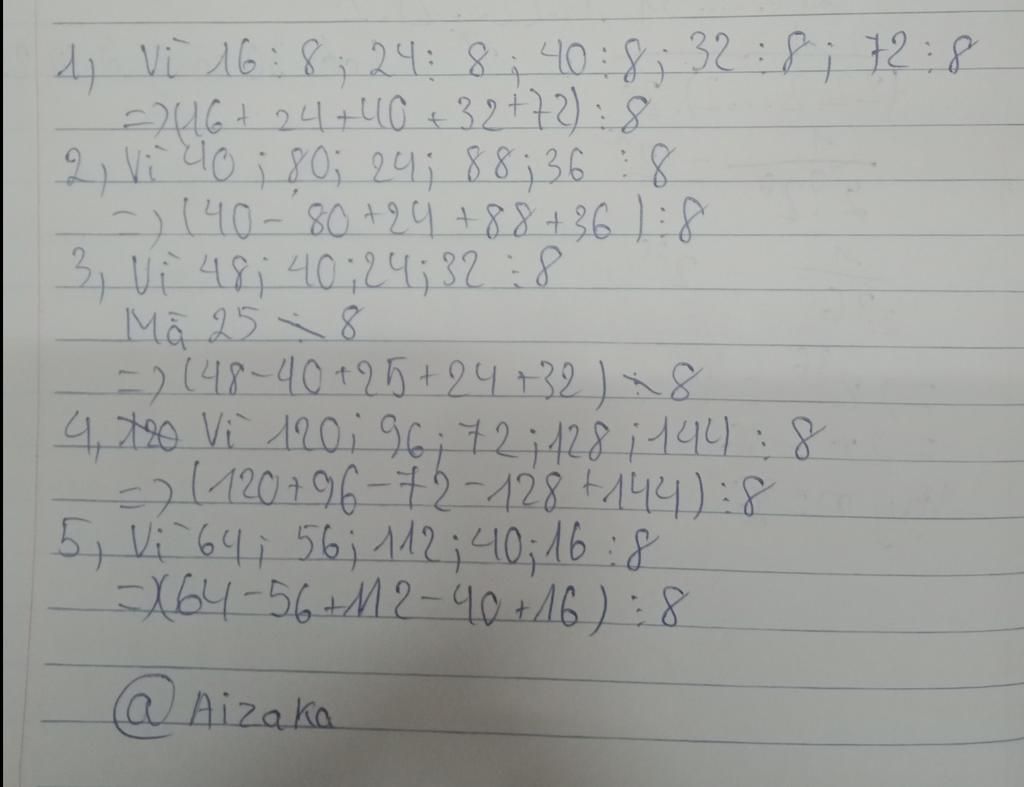 1, Vì 16 ⋮ 8; 24 ⋮ 8; 40 ⋮ 8; 32 ⋮ 8; 72 ⋮ 8
=> (16 + 24 + 40 + 32 + 72) ⋮ 8
2, Vì 40; 80; 24; 88; 36 ⋮ 8
=> (40 - 80 + 24 + 88 + 36) ⋮ 8
3, Vì 48; 40; 24; 32 ⋮ 8
Mà 25 ⋮̸ 8
=> (48 - 40 + 25 + 24 + 32) ⋮̸ 8
4, Vì 120; 96; 72; 128; 144 ⋮ 8
=> (120 + 96 - 72 - 128 + 144) ⋮ 8
5, Vì 64; 56; 112; 40; 16 ⋮ 8
=> (64 - 56 + 112 - 40 + 16) ⋮ 8
@Aizaka